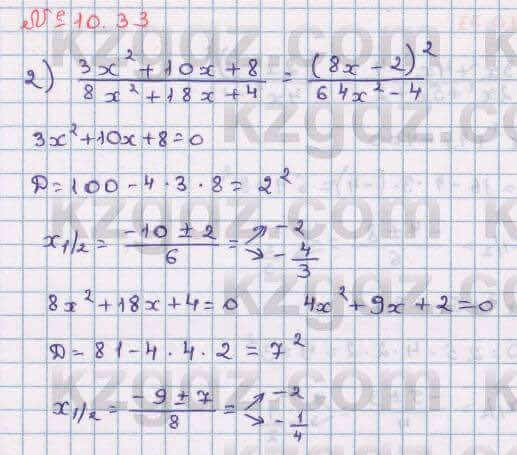 № 10.33
2) (3x² + 10x + 8)/(8x² + 18x + 4) = (8x - 2)²/(64x² - 4)
3x² + 10x + 8 = 0
D = 100 - 4 · 3 · 8 = 2²
x₁/₂ = (-10 ± 2)/6 = ↗ -2 ↘ -4/3
8x² + 18x + 4 = 0 4x² + 9x + 2 = 0
D = 81 - 4 · 4 · 2 = 7²
x₁/₂ = (-9 ± 7)/8 = ↗ -2 ↘ -1/4
kzgdz.com